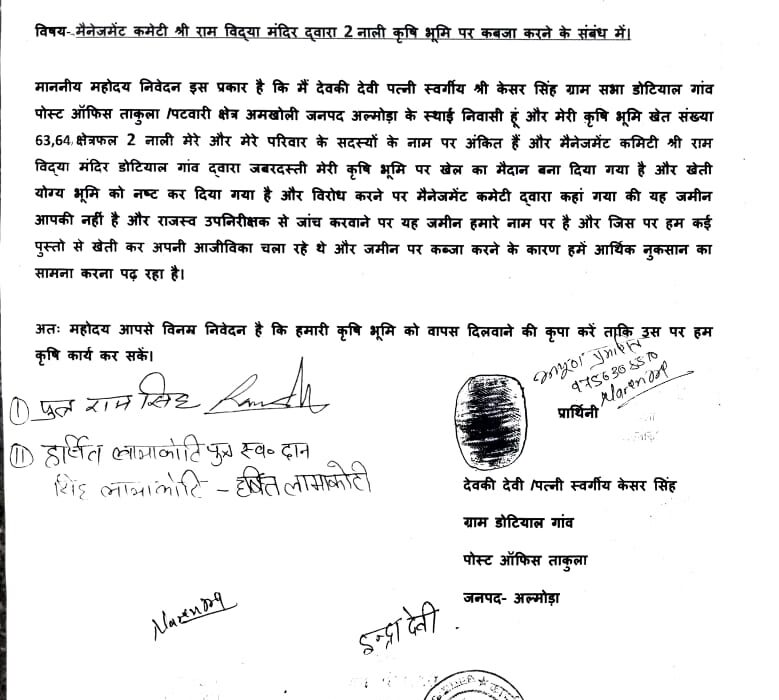 विषय- मैनेजमेंट कमेटी श्री राम विद्या मंदिर द्वारा 2 नाली कृषि भूमि पर कबजा करने के संबंध में।
माननीय महोदय निवेदन इस प्रकार है कि मैं देवकी देवी पत्नी स्वर्गीय श्री केसर सिंह ग्राम सभा डोटियाल गांव
पोस्ट ऑफिस ताकुला /पटवारी क्षेत्र अमखोली जनपद अल्मोड़ा के स्थाई निवासी हूं और मेरी कृषि भूमि खेत संख्या
63,64, क्षेत्रफल 2 नाली मेरे और मेरे परिवार के सदस्यों के नाम पर अंकित हैं और मैनेजमेंट कमिटी श्री राम
विद्या मंदिर डोटियाल गांव द्वारा जबरदस्ती मेरी कृषि भूमि पर खेल का मैदान बना दिया गया है और खेती
योग्य भूमि को नष्ट कर दिया गया है और विरोध करने पर मैनेजमेंट कमेटी द्वारा कहां गया की यह जमीन
आपकी नहीं है और राजस्व उपनिरीक्षक से जांच करवाने पर यह जमीन हमारे नाम पर है और जिस पर हम कई
पुस्तो से खेती कर अपनी आजीविका चला रहे थे और जमीन पर कब्जा करने के कारण हमें आर्थिक नुकसान का
सामना करना पढ़ रहा है।
अतः महोदय आपसे विनम्र निवेदन है कि हमारी कृषि भूमि को वापस दिलवाने की कृपा करें ताकि उस पर हम
कृषि कार्य कर सकें।
① पुत्र राम सिंह
Narendra
प्रार्थिनी
⑪ हर्षित लामाकोटि पुत्र स्व० दान
सिंह लामाकोटि - हर्षित लामाकोटी
देवकी देवी /पत्नी स्वर्गीय केसर सिंह
ग्राम डोटियाल गांव
पोस्ट ऑफिस ताकुला
जनपद- अल्मोड़ा
Narendra
इन्द्रा देवी .